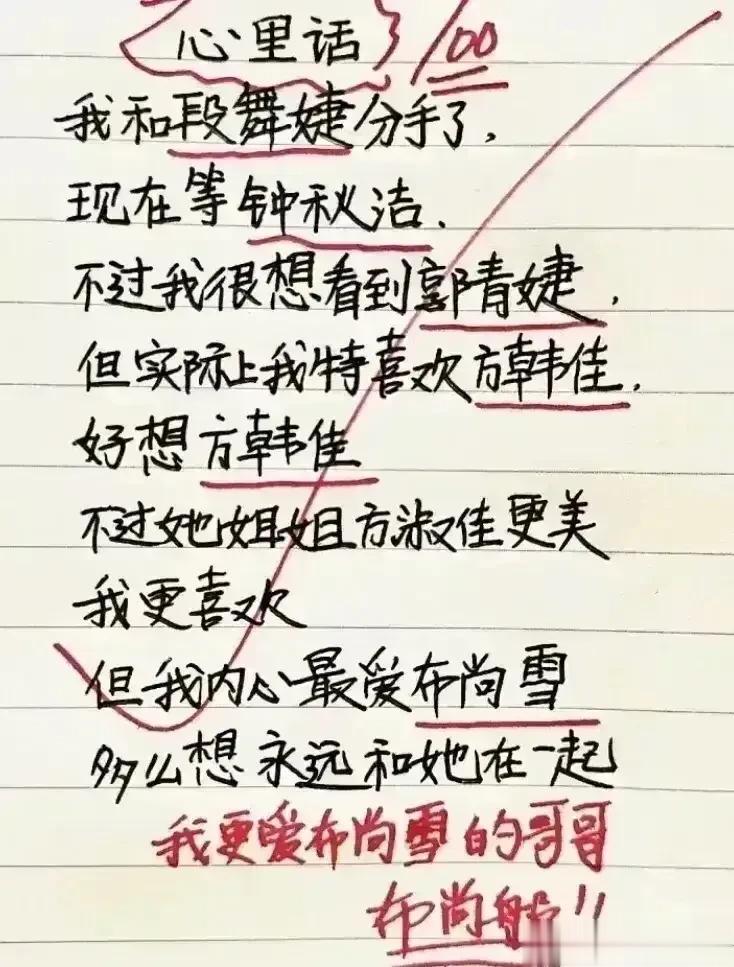 心里话 100
我和段舞婕分手了，
现在等钟秋洁．
不过我很想看到郭清婕，
但实际上我特喜欢方韩佳，
好想方韩佳
不过她姐姐方淑佳更美
我更喜欢
但我内心最爱布尚雪
多么想永远和她在一起
我更爱布尚雪的哥哥
布尚船！！